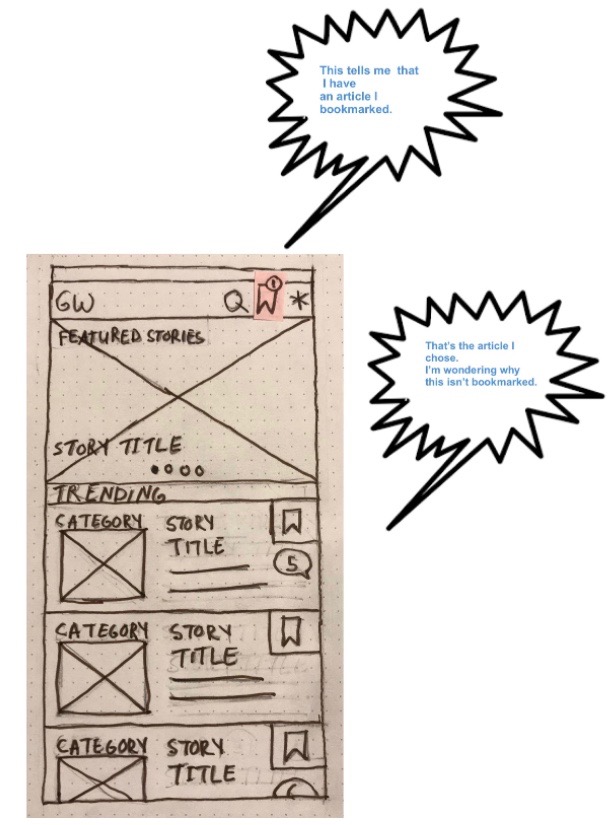 This tells me that
I have
an article I
bookmarked.
GW
1
FEATURED STORIES
That's the article I
chose.
I'm wondering why
this isn't bookmarked.
STORY TITLE
TRENDING
CATEGORY
STORY
TITLE
5
CATEGORY
STORY
TITLE
CATEGORY
STORY
TITLE